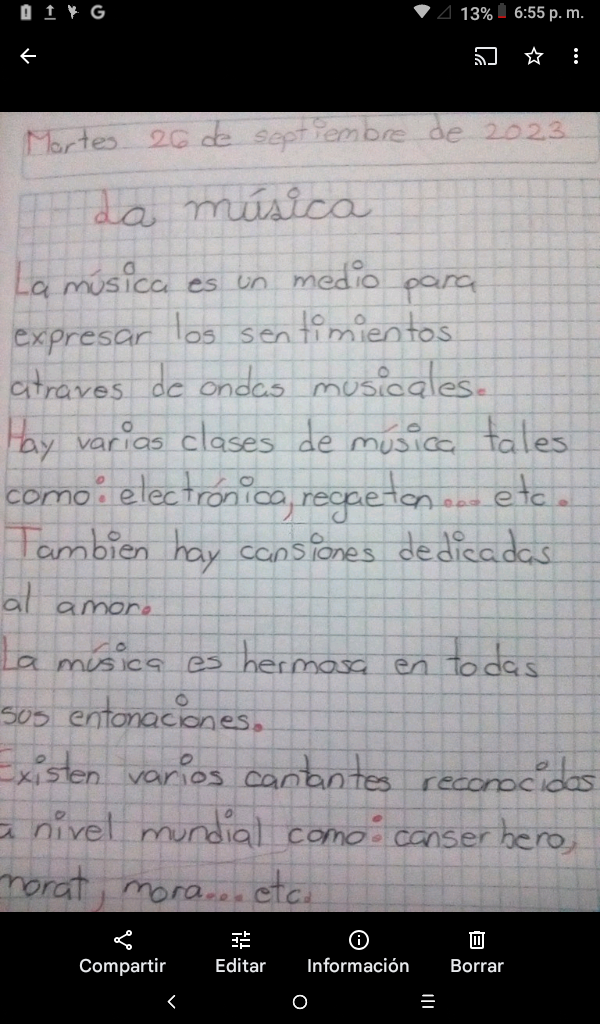 13% 6:55 p. m.
Martes 26 de septiembre de 2023
La música
La música es un medio para
expresar los sentimientos
atraves de ondas musicales.
Hay varias clases de música tales
como: electrónica, regaeton... etc.
Tambien hay cansiones dedicadas
al amor.
La música es hermosa en todas
sus entonaciones.
Existen varios cantantes reconocidos
a nivel mundial como: canserbero,
morat, mora... etc.
Compartir Editar Información Borrar